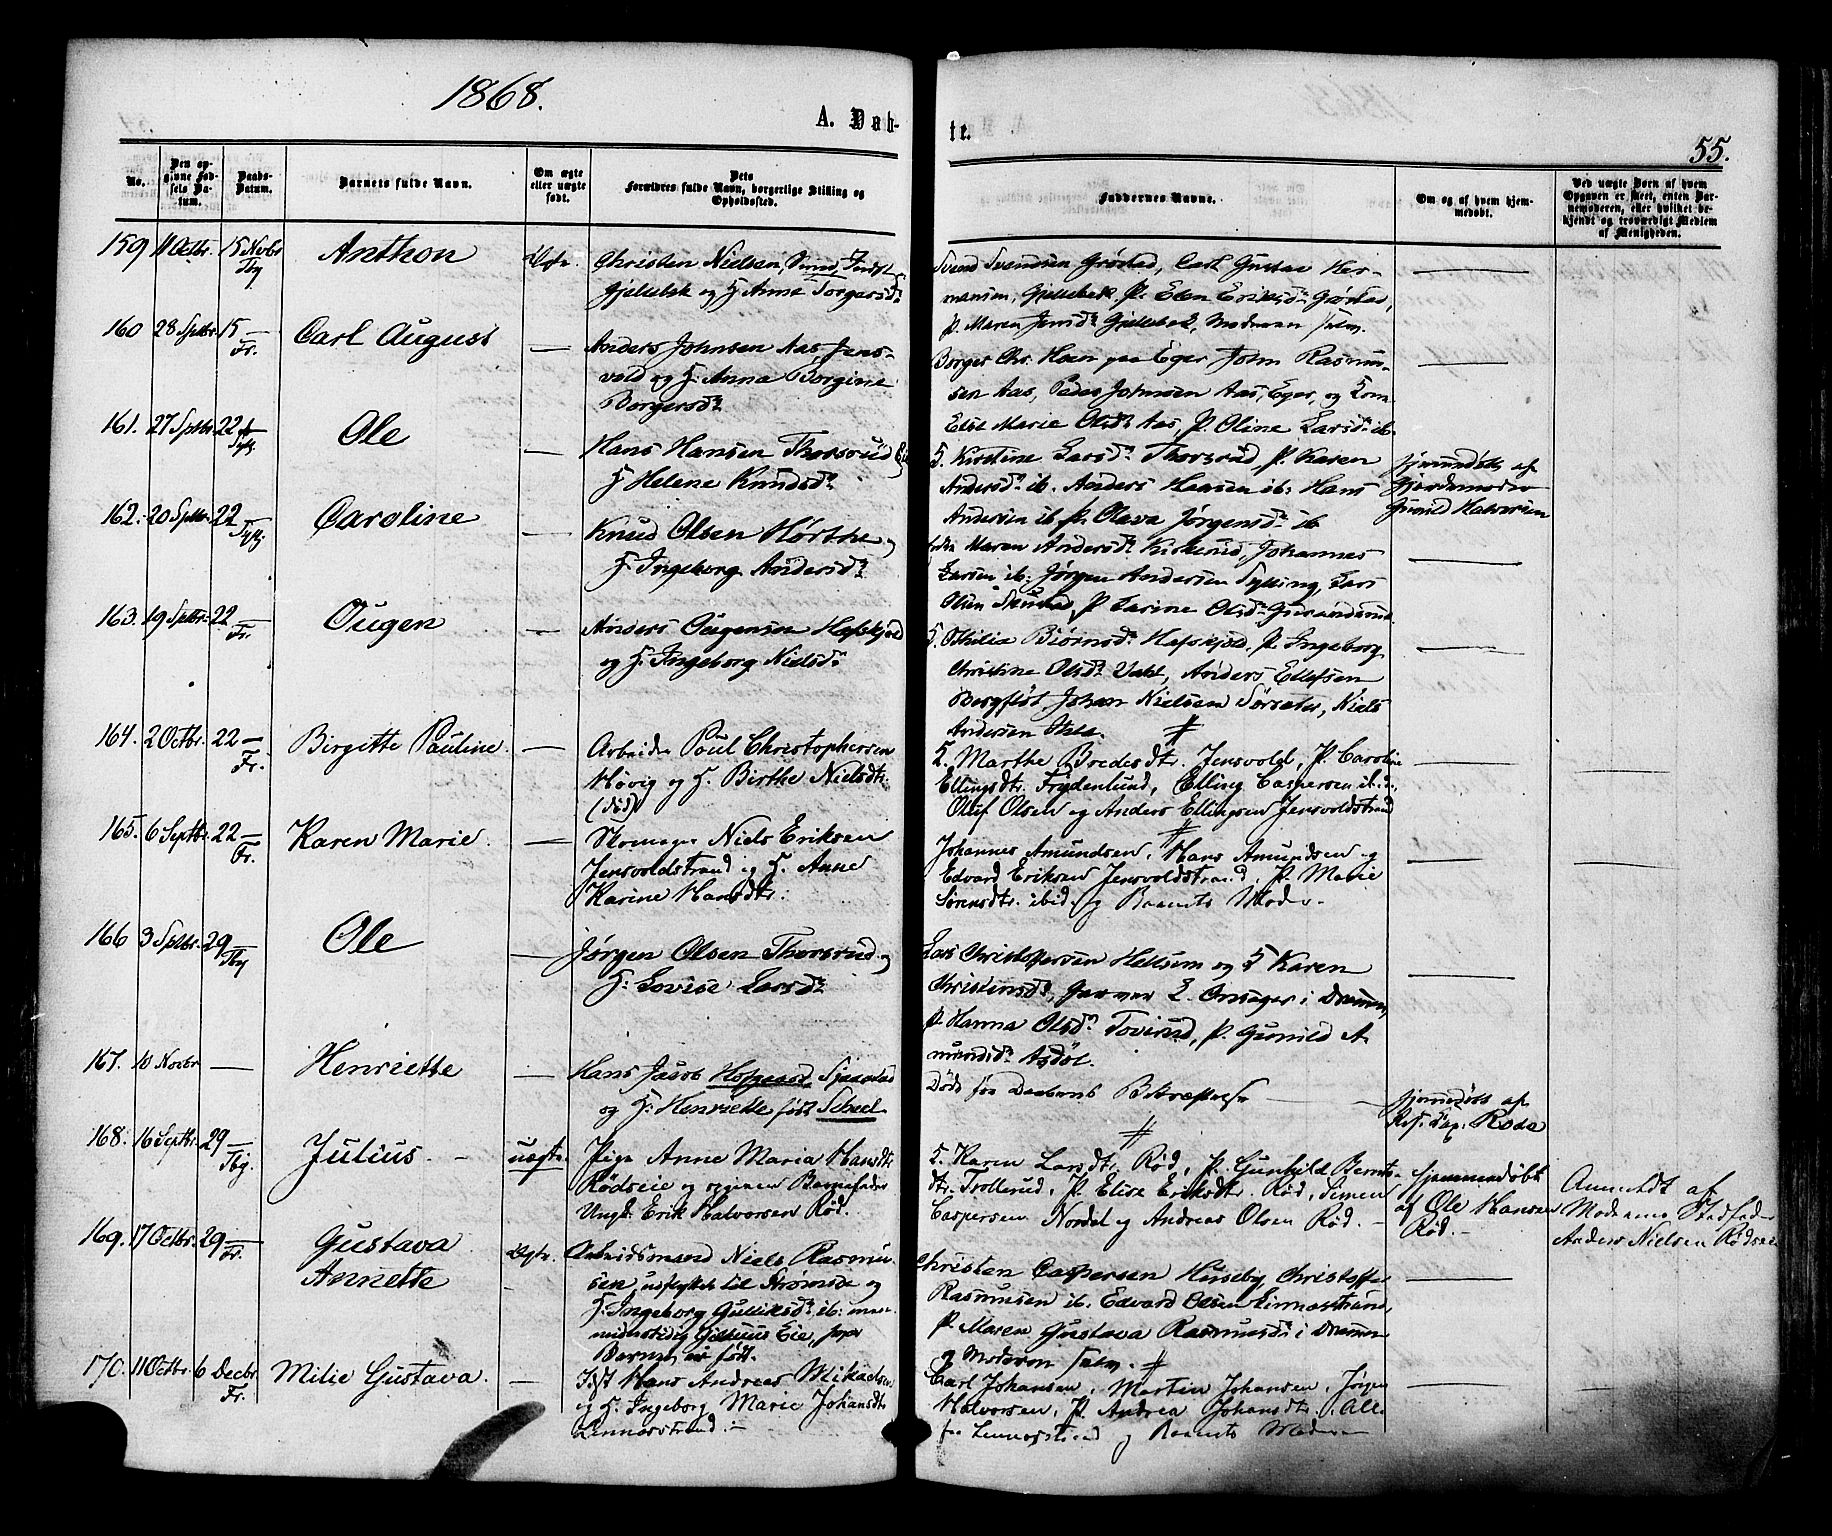 1868.
A. Døb-
te.
55.
No.
Den op-
givne Fød-
sels Da-
tum.
Daabs-
Datum.
Barnets fulde Navn.
Om ægte
eller uægte
født.
Dets
Forældres fulde Navn, borgerlige Stilling og
Opholdssted.
Faddernes Navne.
Om og af hvem hjem-
medøbt.
Ved uægte Børn af hvem
Opgaven er skeet, enten Bar-
nemoderen, eller hvilket be-
kjendt og troværdigt Medlem
af Menigheden.
159 11 Octbr. 15 Novbr Tby
Anthon
Ægte.
Christen Nielsen, Smed, Indst
Gjellebek og H. Anne Torgersdr
Svend Svendsen Grøstad, Carl Gustav Her-
mansen, Gjellebek, P. Elen Eriksdr Grøstad,
P. Maren Jensdr Gjellebek, Moderen selv.
160 28 Septbr. 15 — Fr.
Carl August
—
Anders Johnsen Aas, Jens-
vold og H. Anna Borgine
Borgersdr
Borger Chr. Hoen paa Eger, John Rasmus-
sen Aas, Peder Johnsen Aas, Eger, og Kone
Else Marie Olsdr Aas, P. Oline Larsdr ib.
161. 27 Septbr. 22 Sylg.
Ole
—
Hans Hansen Thorsrud
H Helene Knudsdr
H. Kirstine Larsdr Thorsrud, P. Karen
Andersdr ib. Anders Hansen ib. Hans
Andersen ib. P. Olava Jørgensdr ib
Hjemmedøbt af
Gjordemoder
Gunild Halvorsen
162. 20 Septbr. 22 Sylg.
Caroline
—
Knud Olsen Hørthe og
H. Ingeborg Andersdr
Maren Andersdr Kirkerud, Johannes
Larsen ib. Jørgen Andersen Sylling, Lars
Olsen Skustad, P. Karine Olsdr
163. 19 Septbr. 22 — Fr.
Ougen
—
Anders Ougensen Hafskjold
og H. Ingeborg Nielsdr
H. Othilia Biørnsdr Hafskjold, P. Ingeborg
Christine Olsdr Dahl, Anders Ellefsen
Bergfløt, Johan Nielsen Sørsæter, Niels
Andersen
164. 2 Octbr. 22 — Fr.
Birgitte Pauline.
—
Arbeider Poul Christophersen
Høvig og H. Birthe Nielsdtr.
(død)
H. Marthe Bredesdtr. Jensvold, P. Caroline
Ellingsdtr. Frydenlund, Elling Caspersen ibid.
Oluf Olsen og Anders Ellingsen Jensvoldstrand
165. 6 Septbr. 22 — Fr.
Karen Marie.
—
Skomager Niels Eriksen
Jensvoldstrand og H. Anne
Karine Hansdtr.
Johannes Amundsen, Hans Amundsen og
Edvard Eriksen Jensvoldstrand, P. Marie
Sørensdtr. ibid. og Barnets Moder.
166 3 Septbr. 29 — Tby
Ole
—
Jørgen Olsen Thorsrud og
H. Lovise Larsdr
Lars Christophersen Hellum og H Karen
Christensdr, Garver L. Onsager i Drammen,
P. Hanna Olsdr Toverud, P. Gunild A-
mundsdr Asdøl.
167. 10 Novbr —
Henriette
—
Hans Jacob Hofgaard Sjaastad
og H. Henriette født Scheel
Død før Daabens Bekræftelse —
Hjemmedøbt af
Res. Cap. Rode
168. 16 Septbr. 29 — Tby.
Julius. —
uægte.
Pige Anne Maria Hansdtr
Rødseie og opgiven Barnefader
Ungk. Erik Halvorsen Rød.
H. Karen Larsdtr. Rød, P. Gunhild Bernts-
dtr. Trollerud, P. Elise Eriksdtr. Rød, Simen
Caspersen Nordel og Andreas Olsen Rød. —
Hjemmedøbt
af Ole Hansen
Rød. —
Anmeldt af
Moderens Stedfader
Anders Nielsen Rødseie
169. 17 Octbr. 29 — Fr.
Gustava
Annette
Ægte.
Arbeidsmand Niels Rasmus-
sen, udflyttet til Strømsø og
H. Ingeborg Gulliksdr ib. nu
midlertidig Gilhuus Eie, hvor
Barnet er født.
Christen Caspersen Huseby, Christoffer
Rasmussen ib. Edvard Olsen Linnesstrand,
P. Maren Gustava Rasmusdr i Drammen
og Moderen selv.
170. 11 Octbr. 6 Decbr. Fr.
Milie Gustava.
—
Idst Hans Andreas Mikaelsen
og H. Ingeborg Marie Johansdtr
Linnesstrand. —
Carl Johansen, Martin Johansen, Jørgen
Halvorsen, P. Andrea Johansdtr. Alle
fra Linnesstrand og Barnets Moder